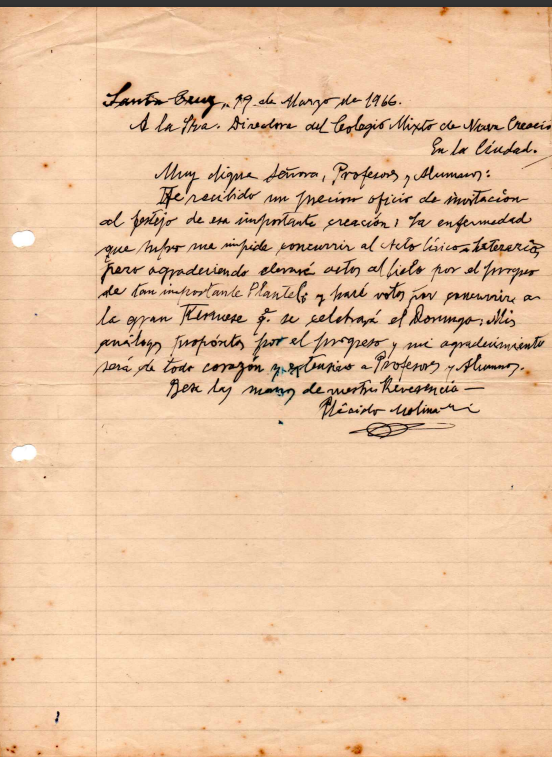 Santa Cruz, 19 de Marzo de 1966.
A la Sra. Directora del Colegio Mixto de Nueva Creación
En la Ciudad.
Muy digna Señora, Profesores y Alumnos:
He recibido un precioso oficio de invitación
al festejo de esa importante creación; la enfermedad
que sufro me impide concurrir al Acto lírico-literario,
pero agradeciendo elevaré al Cielo por el progreso
de tan importante Plantel; y haré votos por concurrir a
la gran Kermese q. se celebrará el Domingo; Mis
análogos propósitos por el progreso y mi agradecimiento
será de todo corazón y extensivo a Profesores y Alumnos.
Besa las manos de vuestra Reverencia—
Plácido Molina